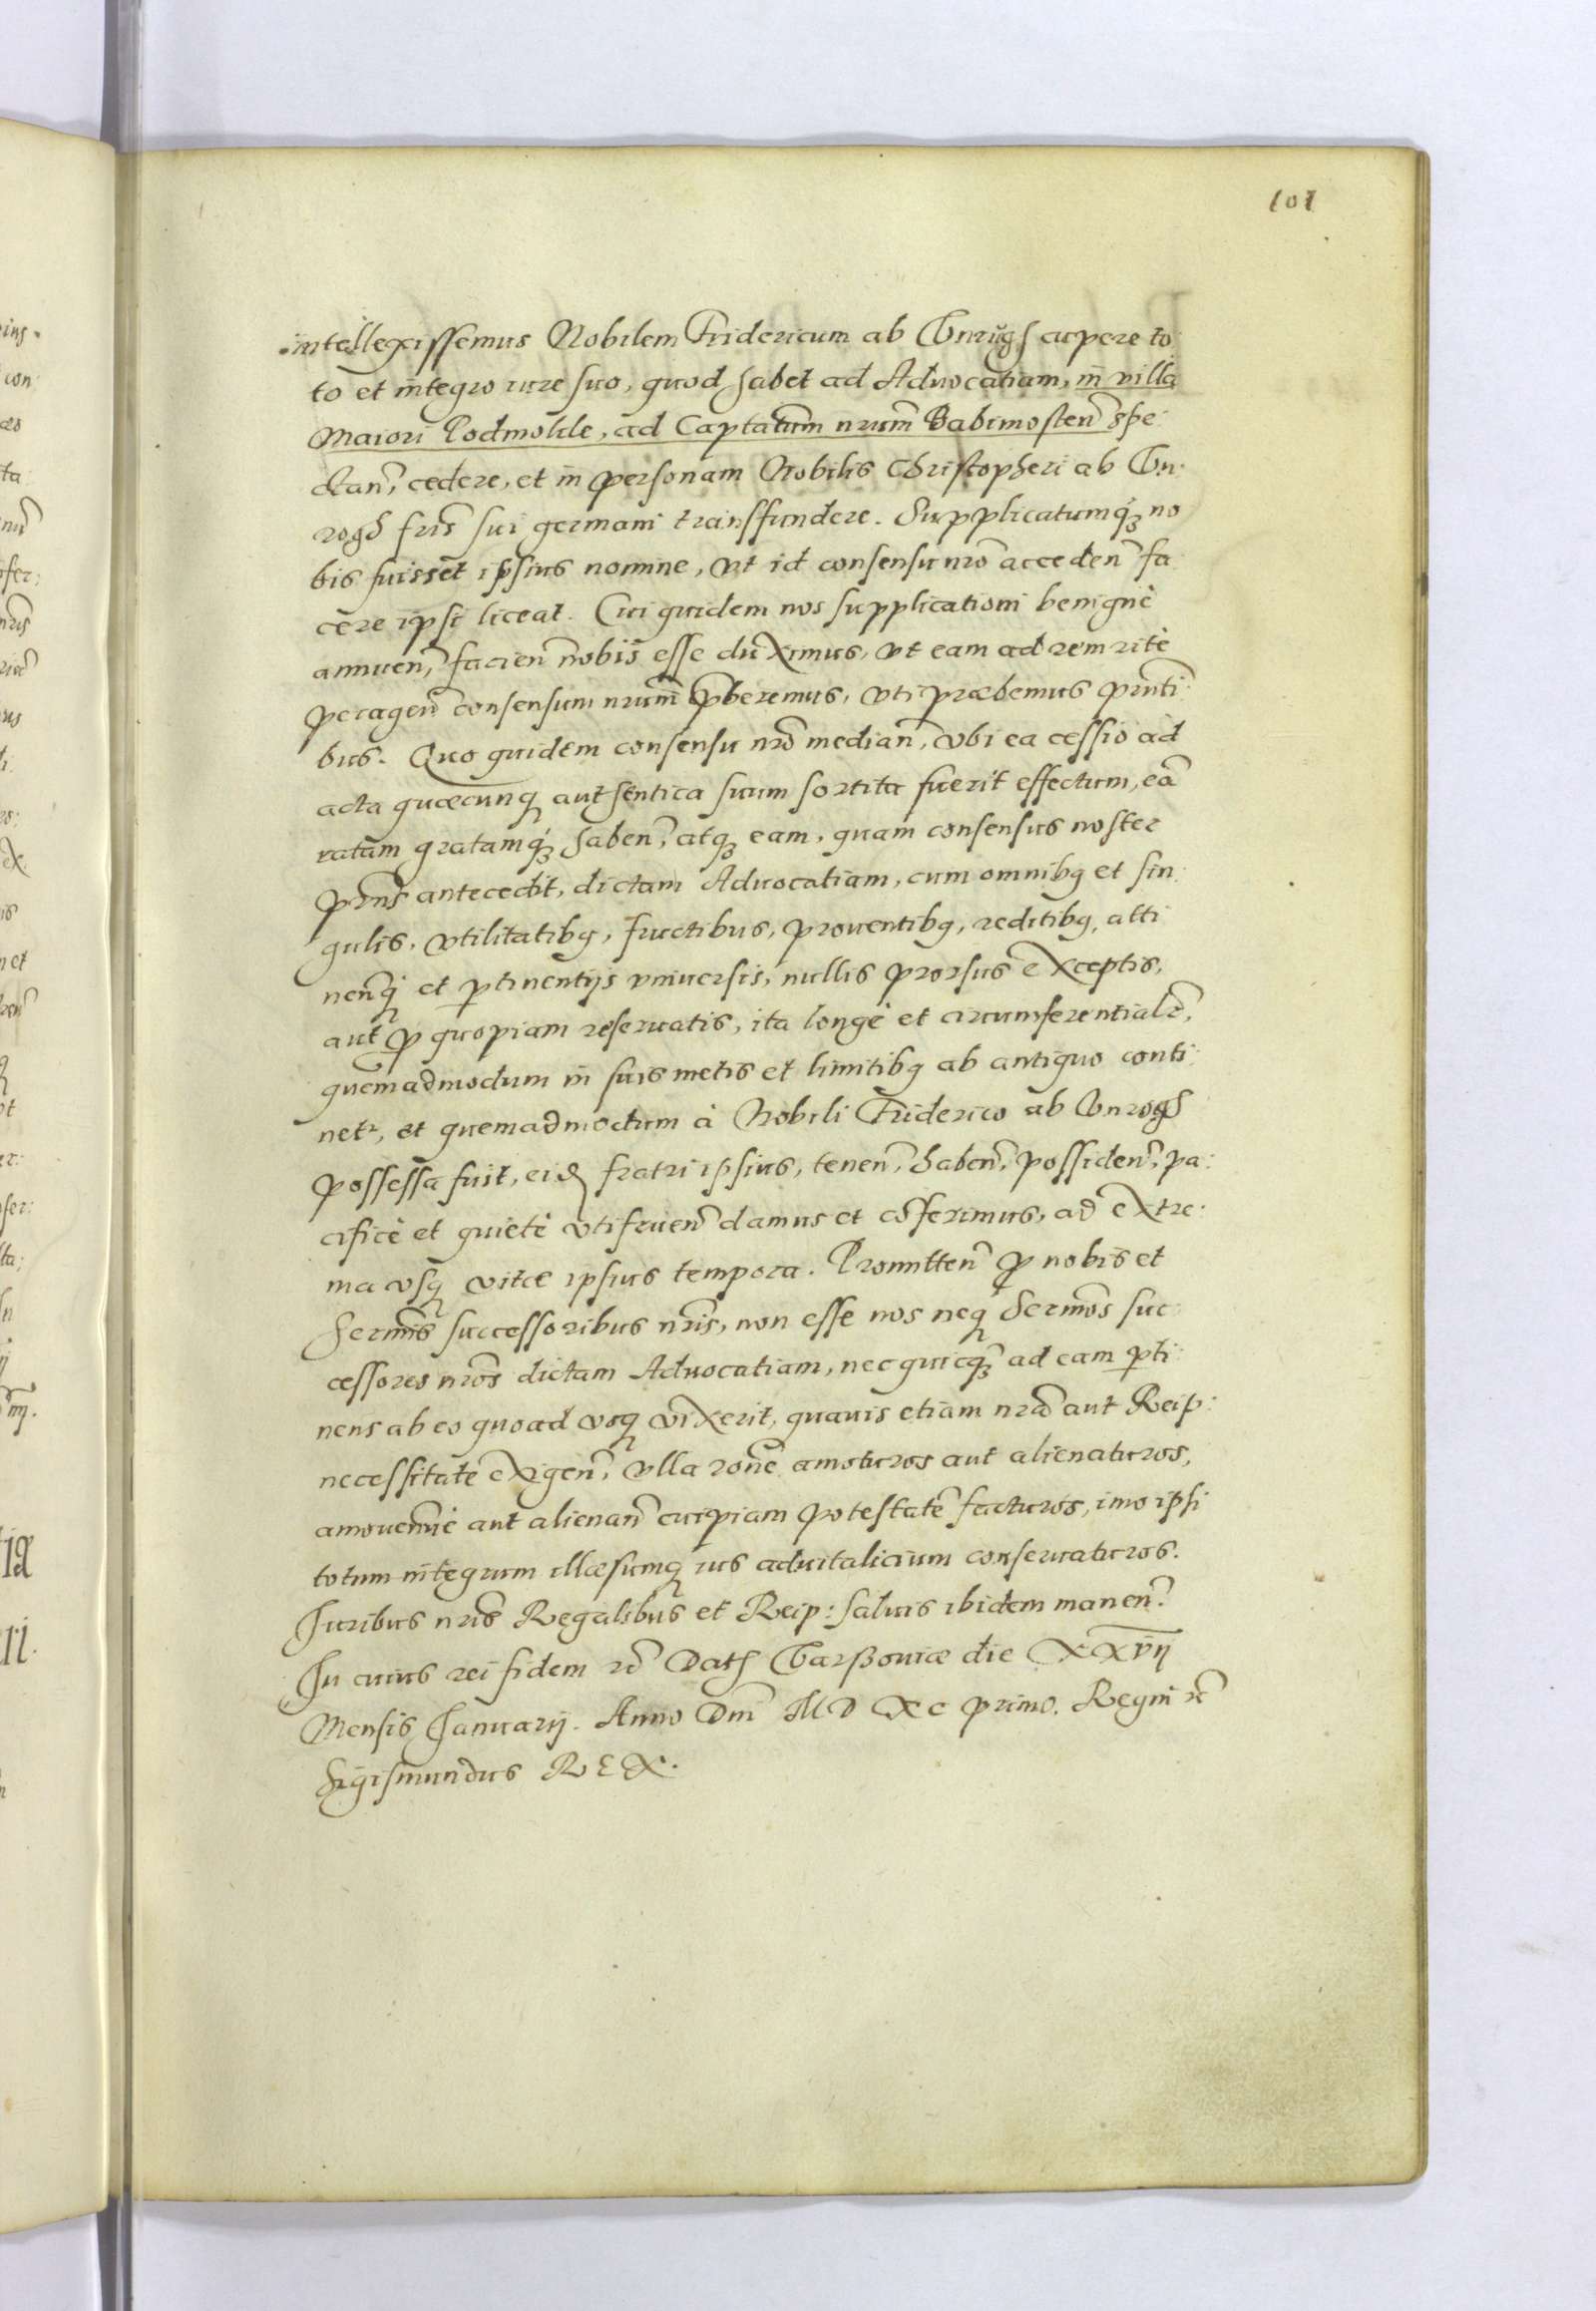 101
intellexissemus Nobilem Fridericum ab Vnrugh cupere to
to et integro iure suo, quod habet ad Aduocatiam, in villa
Maiori Podmokle, ad Captatum nrum Babimosten spe:
ctan, cedere, et in personam Nobilis Christopheri ab Vn:
rogh fris sui germani transfundere. Supplicatumq no
bis fuisset ipsius nomine, vt id consensu nro acceden fa
cere ipsi liceat. Cui quidem nos supplicationi benignè
annuen, facien nobis esse duximus, vt eam ad rem ritè
peragen consensum nrum pberemus, vti præbemus prnti
bus. Quo quidem consensu nro median, vbi ea cessio ad
acta quæcunq authentica suum sortita fuerit effectum, ea
ratam gratamq haben, atq eam, quam consensus noster
prns antecedit, dictam Aduocatiam, cum omnibq et sin:
gulis, vtilitatibq, fructibus, prouentibq, reditibq, atti
nenq et ptinentijs vniuersis, nullis prorsus exceptis,
aut p quopiam reseruatis, ita longè et circumferentialr,
quemadmodum in suis metis et limitibq ab antiquo conti:
netr, et quemadmodum à Nobili Friderico ab Vnrogh
possessa fuit, eid fratri ipsius, tenen, haben, possiden, pa:
cificè et quietè vtifruen damus et coferimus, ad extre:
ma vsq vitæ ipsius tempora. Promitten p nobis et
Sermis successoribus nris, non esse nos neq Sermos suc:
cessores nros dictam Aduocatiam, nec quicq ad eam pti
nens ab eo quoad vsq vixerit, quauis etiam nra aut Reip:
necessitate exigen, vlla rone amoturos aut alienaturos,
amouendiè aut alienan cuipiam potestate facturos, imo ipsi
totum integrum illæsumq ius aduitalicium conseruaturos.
Iuribus nris Regalibus et Reip: saluis ibidem manen.
In cuius rei fidem rc Dath Varßouiæ die XXVII
Mensis Ianuarij. Anno Dni M D XC primo. Regni rc
Sigismundus REX.